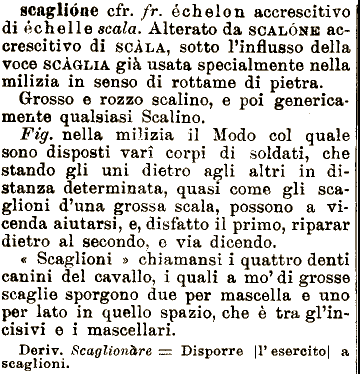 scaglióne cfr. fr. échelon accrescitivo
di échelle scala. Alterato da SCALÓNE ac-
crescitivo di SCÀLA, sotto l'influsso della
voce SCÀGLIA già usata specialmente nella
milizia in senso di rottame di pietra.
Grosso e rozzo scalino, e poi generica-
mente qualsiasi Scalino.
Fig. nella milizia il Modo col quale
sono disposti varî corpi di soldati, che
stando gli uni dietro agli altri in di-
stanza determinata, quasi come gli sca-
glioni d'una grossa scala, possono a vi-
cenda aiutarsi, e, disfatto il primo, riparar
dietro al secondo, e via dicendo.
« Scaglioni » chiamansi i quattro denti
canini del cavallo, i quali a mo' di grosse
scaglie sporgono due per mascella e uno
per lato in quello spazio, che è tra gl'in-
cisivi e i mascellari.
Deriv. Scaglionàre = Disporre |l'esercito| a
scaglioni.